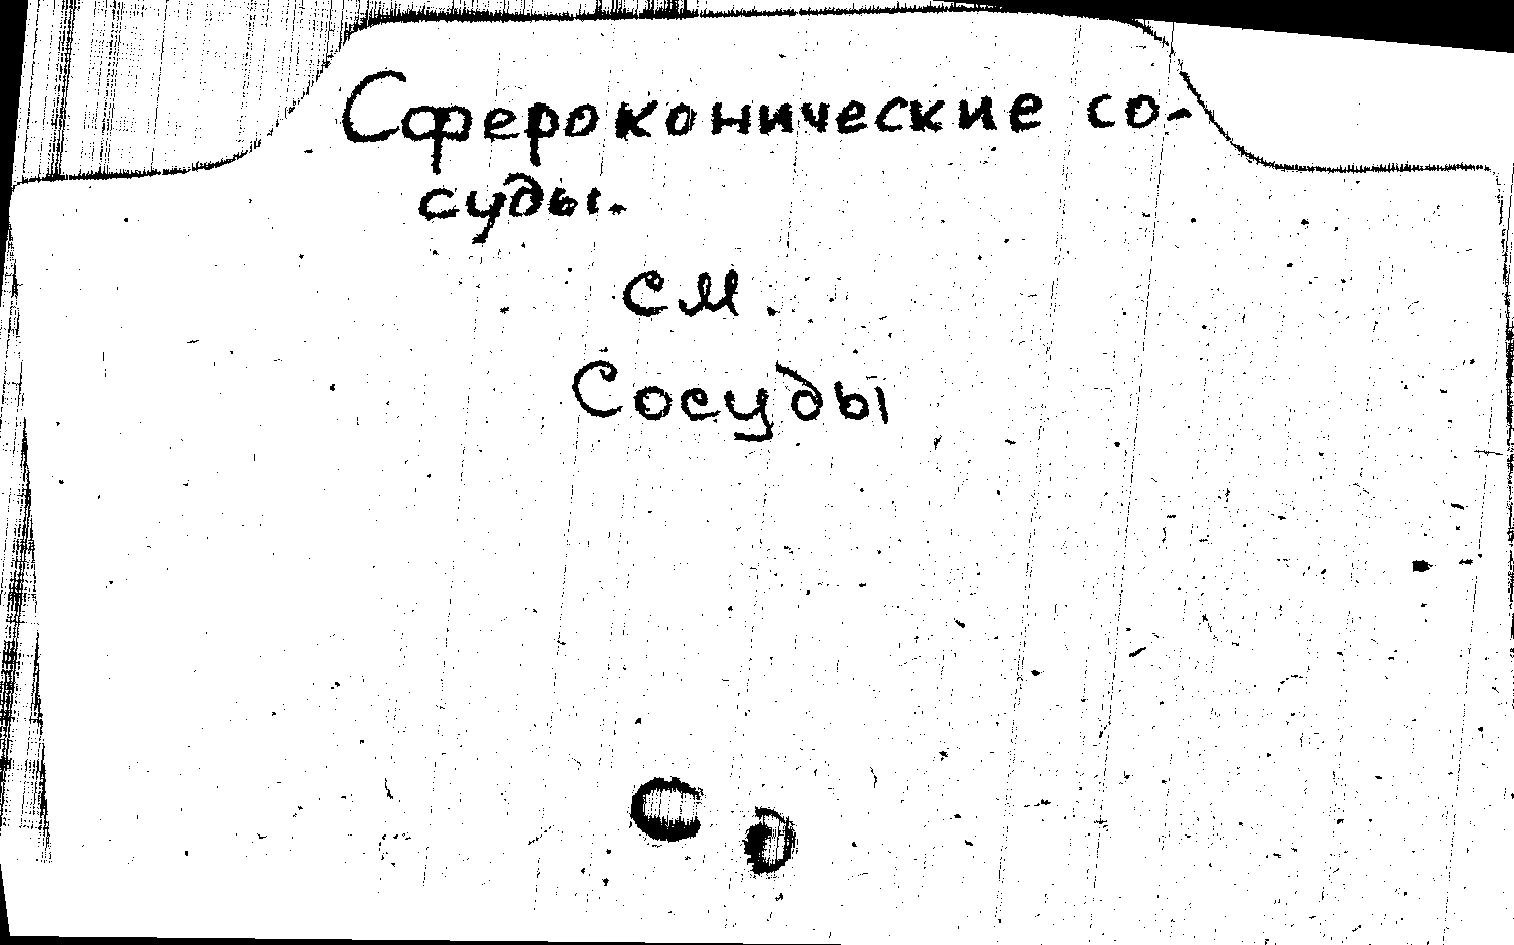 Сфероконические со-
суды.
см.
Сосуды